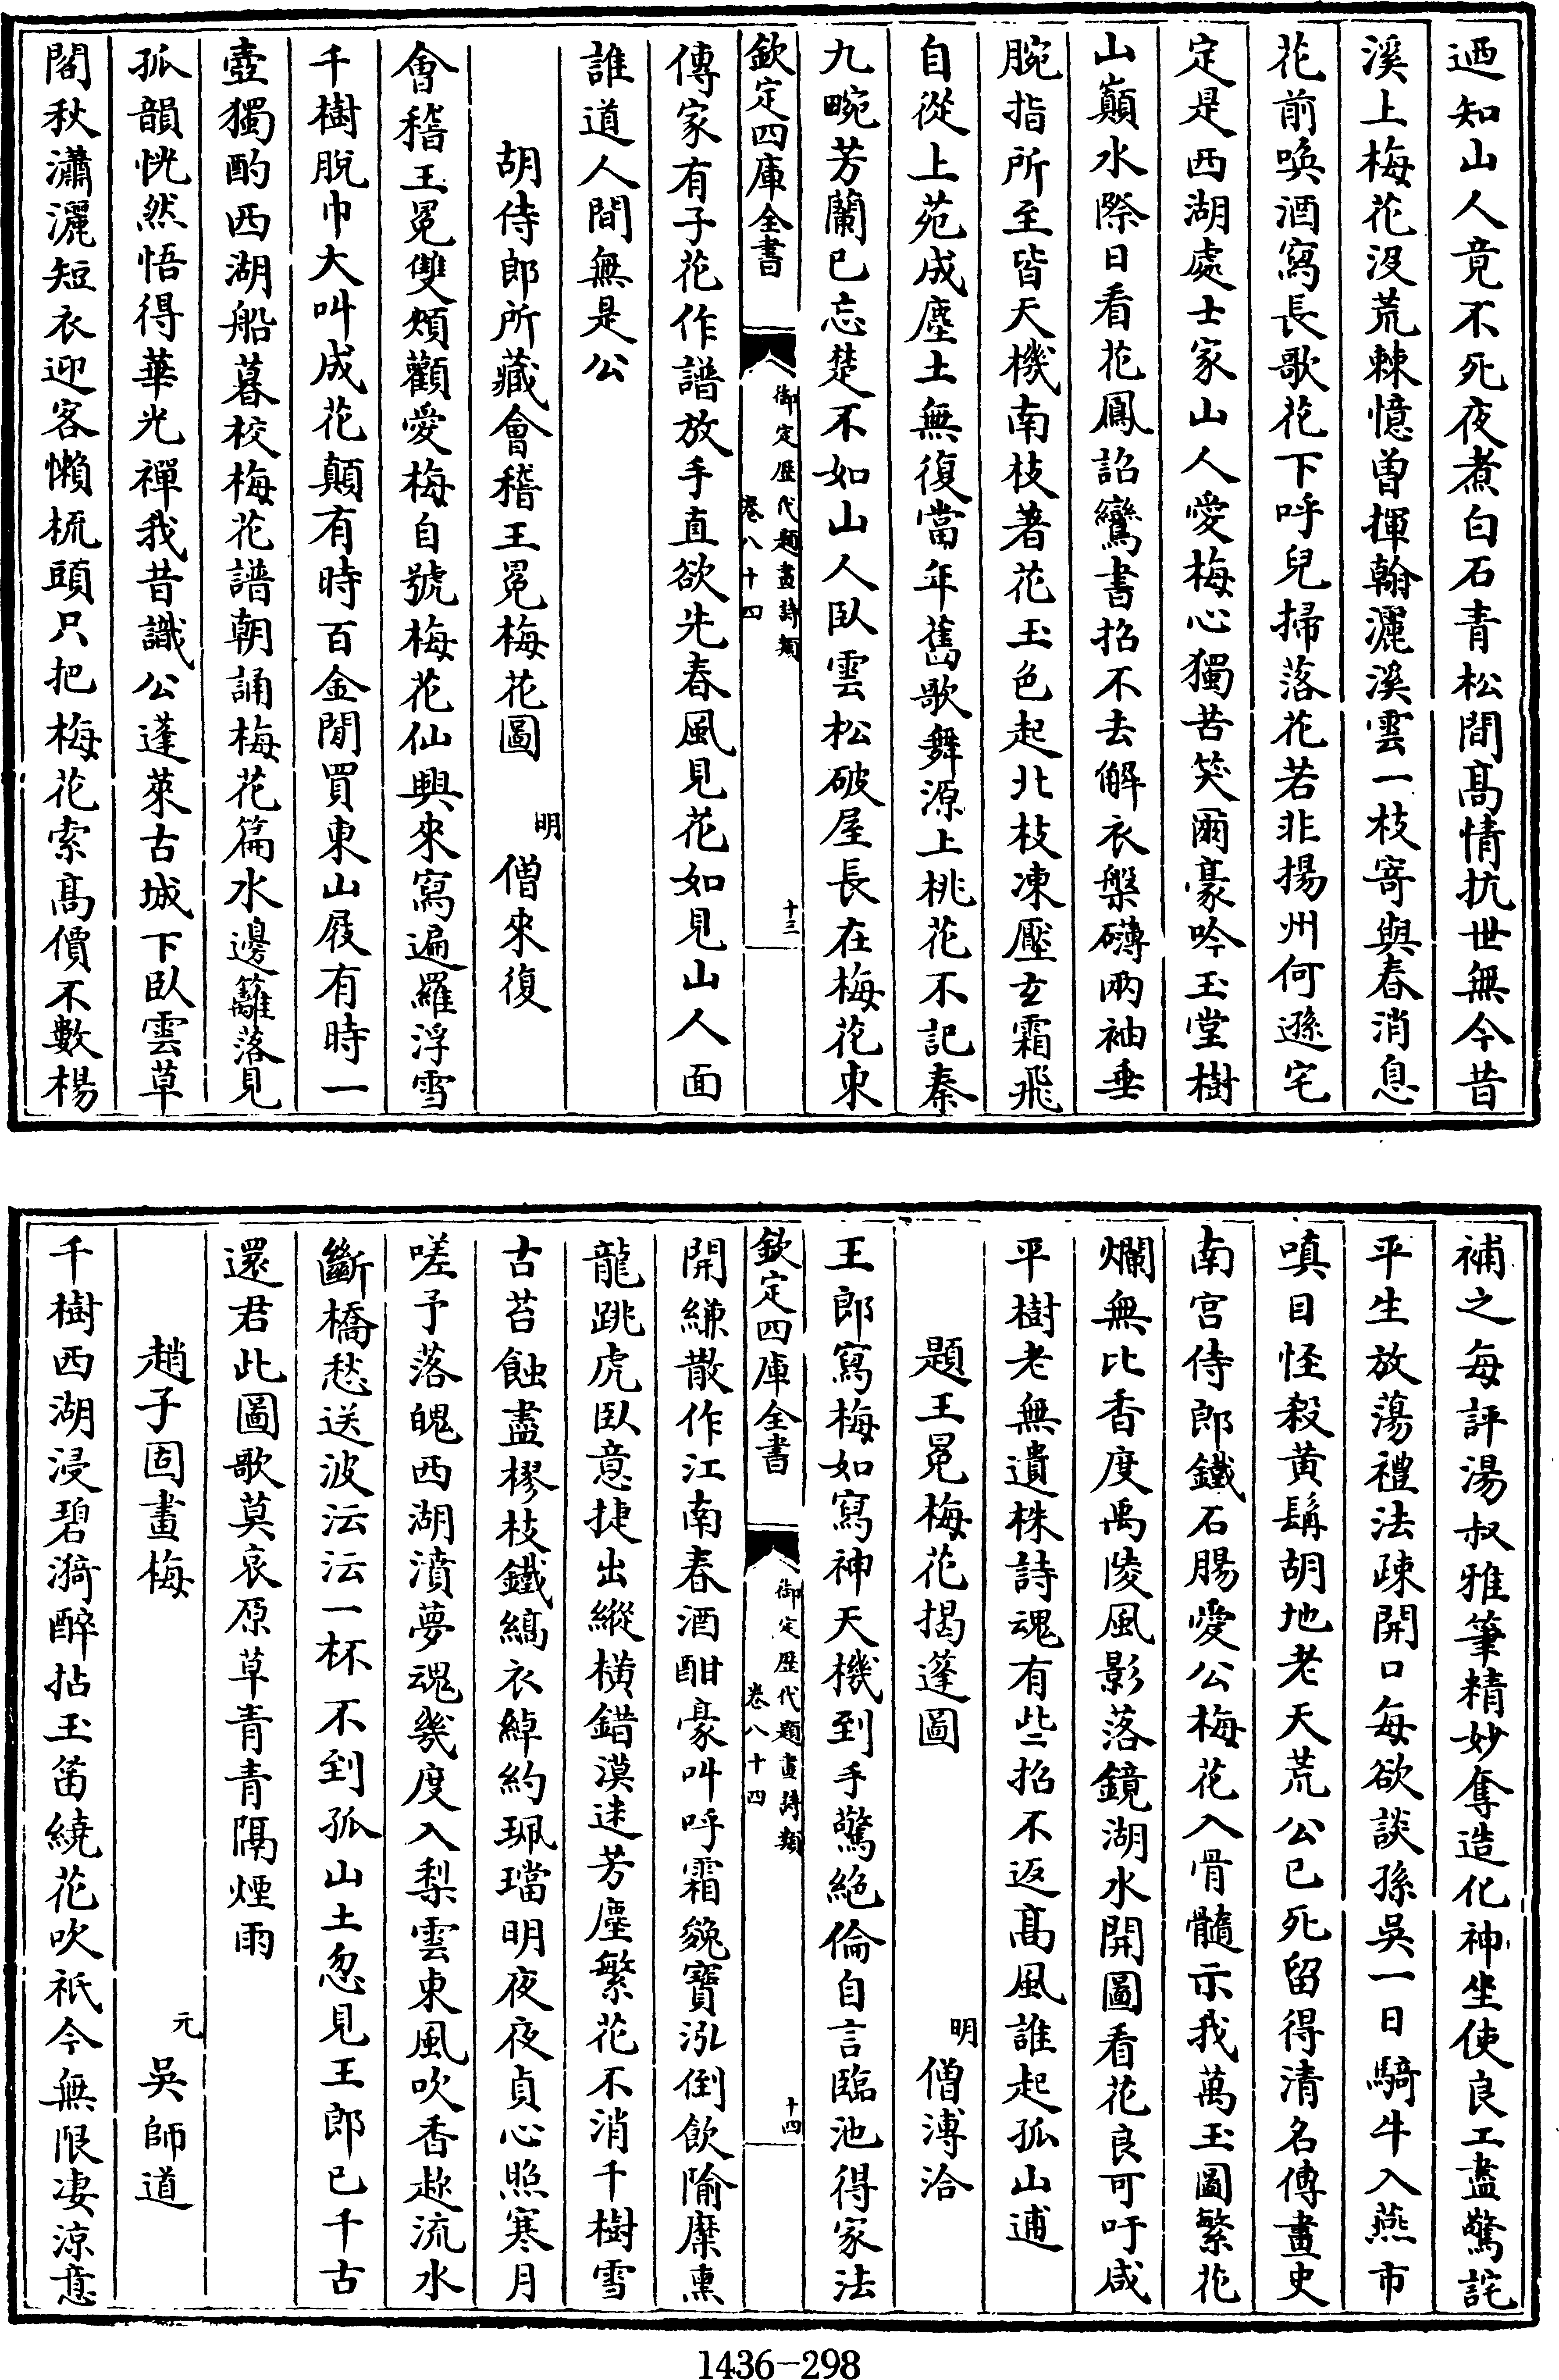 迺知山人竟不死夜煮白石青松間髙情抗世無今昔
溪上梅花没荒棘憶曽揮翰灑溪雲一枝寄與春消息
花前喚酒寫長歌花下呼兒掃落花若非揚州何遜宅
定是西湖處士家山人愛梅心獨苦笑爾豪吟玉堂樹
山巔水際日看花鳳詔鸞書招不去解衣槃礴兩袖垂
腕指所至皆天機南枝著花玉色起北枝凍壓玄霜飛
自從上苑成塵土無復當年舊歌舞源上桃花不記秦
九畹芳蘭已忘楚不如山人臥雲松破屋長在梅花東
欽定四庫全書
御定歷代題畫詩類
卷八十四
十三
傳家有子花作譜放手直欲先春風見花如見山人面
誰道人間無是公
胡侍郎所藏會稽王冕梅花圖
明
僧來復
會稽王冕雙頰顴愛梅自號梅花仙興來寫遍羅浮雪
千樹脫巾大叫成花顛有時百金閒買東山屐有時一
壺獨酌西湖船暮校梅花譜朝誦梅花篇水邊籬落見
孤韻恍然悟得華光禪我昔識公蓬萊古城下臥雲草
閣秋瀟灑短衣迎客懶梳頭只把梅花索髙價不數楊
補之每評湯叔雅筆精妙奪造化神坐使良工盡驚詫
平生放蕩禮法疎開口每欲談孫吳一日騎牛入燕市
嗔目怪殺黄鬍胡地老天荒公已死留得清名傳畫史
南宫侍郎鐵石腸愛公梅花入骨髓示我萬玉圖繁花
爛無比香度禹陵風影落鏡湖水開圖看花良可吁咸
平樹老無遺株詩魂有些招不返髙風誰起孤山逋
題王冕梅花揭篷圖
明
僧溥洽
王郎寫梅如寫神天機到手驚絶倫自言臨池得家法
欽定四庫全書
御定歷代題畫詩類
卷八十四
十四
開縑散作江南春酒酣豪叫呼霜毚寶泓倒飲隃糜熏
龍跳虎臥意捷出縱横錯漠迷芳塵繁花不消千樹雪
古苔蝕盡樛枝鐵縞衣綽約珮璫明夜夜貞心照寒月
嗟予落魄西湖濆夢魂幾度入梨雲東風吹香趂流水
斷橋愁送波沄沄一杯不到孤山土忽見王郎已千古
還君此圖歌莫哀原草青青隔煙雨
趙子固畫梅
元
吳師道
千樹西湖浸碧漪醉拈玉笛繞花吹祇今無限凄涼意
1436-298